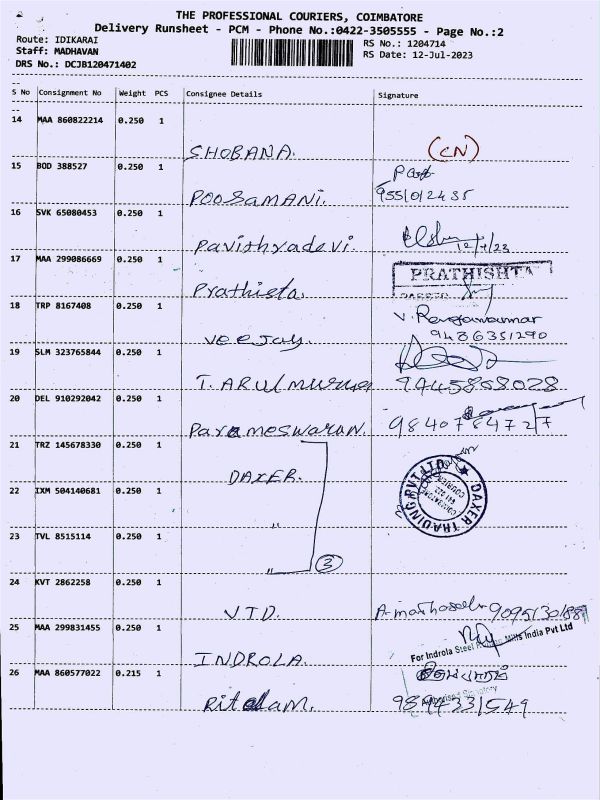 THE PROFESSIONAL COURIERS, COIMBATORE
Delivery Runsheet - PCM - Phone No.:0422-3505555 - Page No.:2
Route: IDIKARAI
RS No.: 1204714
Staff: MADHAVAN
RS Date: 12-Jul-2023
DRS No.: DCJB120471402
S No Consignment No Weight PCS Consignee Details Signature
14 MAA 860822214 0.250 1
SHOBANA. (CN)
15 BOD 388527 0.250 1
POOSAMANI. 9550102435
16 SVK 65080453 0.250 1
Pavithyadevi. 12/7/23
17 MAA 299086669 0.250 1
PRATHISHTA
Prathista.
18 TRP 8167408 0.250 1
veeJay. 9486351290
19 SLM 323765844 0.250 1
T. ARUlmuruga 9445868028
20 DEL 910292042 0.250 1
Parameswaran. 9840784727
21 TRZ 145678330 0.250 1
DAXER.
DAXER TRADING PVT LTD
22 IXM 504140681 0.250 1
"
23 TVL 8515114 0.250 1
" 3
24 KVT 2862258 0.250 1
VTD.
25 MAA 299831455 0.250 1
For Indrola Steel Mills India Pvt Ltd
INDROLA.
26 MAA 860577022 0.215 1
Authorised Signatory
9894331549